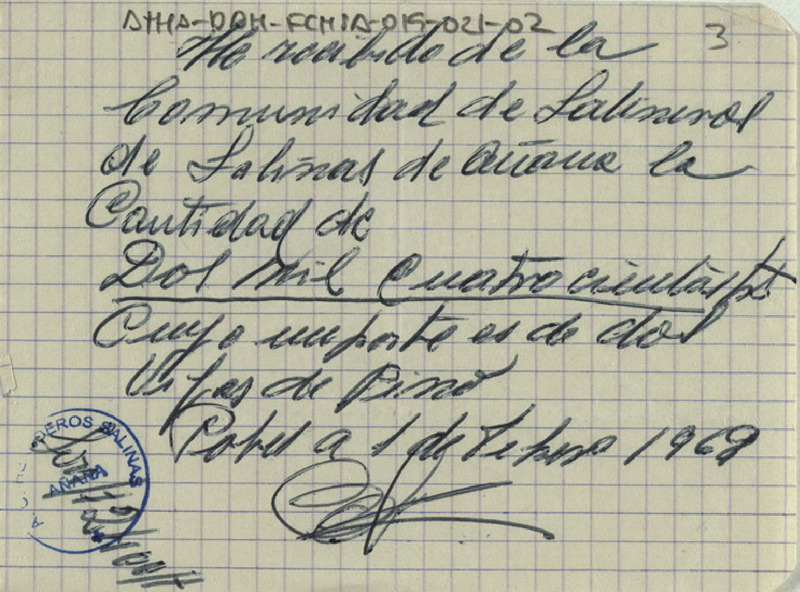 ATHA-DAH-FCHSA-015-021-02
3
He recibido de la
Comunidad de Salineros
de Salinas de Añana la
Cantidad de
Dos mil Cuatrocientas pts
Cuyo importe es de dos
Vigas de Pino
Pobes a 1 de Febrero 1968
EROS SALINAS
AÑANA